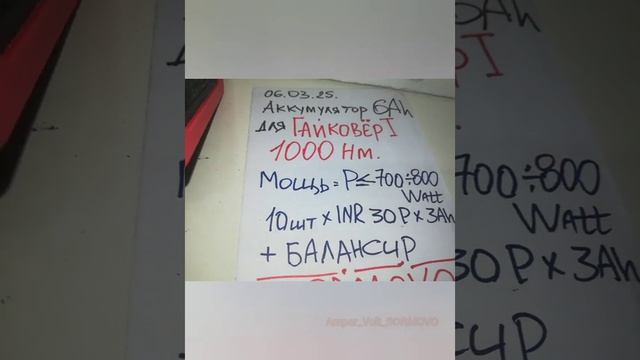 06.03.25.
Аккумулятор 6Ah
для ГАЙКОВЁРТ
1000 Нм.
Мощь = P ≤ 700÷800
Watt
10шт x INR 30P x 3Ah
+ БАЛАНСИР
Amper_Volt_SORMOVO